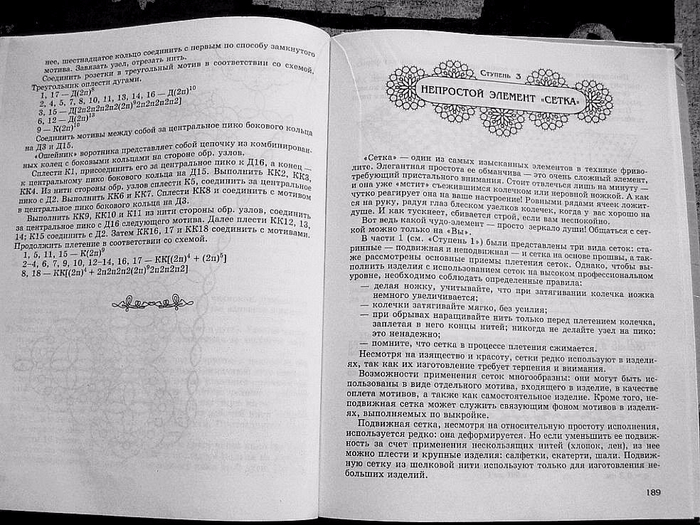 нее, шестнадцатое кольцо соединить с первым по способу замкнутого
мотива. Завязать узел, отрезать нить.
Соединить розетки в треугольный мотив в соответствии со схемой.
Треугольник оплести дугами.
1, 17 — Д(2п)⁹
2, 4, 5, 7, 8, 10, 11, 13, 14, 16 — Д(2п)¹⁰
3, 15 — Д[2п2п2п2п2(2п)⁹2п2п2п2п2]
6, 12 — Д(2п)¹³
9 — К(2п)¹⁰
Соединить мотивы между собой за центральное пико бокового кольца
на Д3 и Д15.
«Ошейник» воротника представляет собой цепочку из комбинирован-
ных колец с боковыми кольцами на стороне обр. узлов.
Сплести К1, присоединить его за центральное пико к Д16, а конец —
к центральному пико бокового кольца на Д15. Выполнить КК2, КК3,
КК4. Из нити стороны обр узлов сплести К5, соединить за центральное
пико с Д2. Выполнить КК6 и КК7. Сплести КК8 и соединить с мотивом
в центральное пико бокового кольца на Д3.
Выполнить КК9, КК10 и К11 из нити стороны обр. узлов, соединить
за центральное пико с Д16 следующего мотива. Далее плести КК12, 13,
14; К15 соединить с Д2. Затем КК16, 17 и КК18 соединить с мотивами.
Продолжить плетение в соответствии со схемой.
1, 5, 11, 15 — К(2п)⁹
2–4, 6, 7, 9, 10, 12–14, 16, 17 — КК[(2п)⁴ + (2п)⁵]
8, 18 — КК[(2п)⁴ + 2п2п2п2(2п)⁹2п2п2п2]
Ступень 3
НЕПРОСТОЙ ЭЛЕМЕНТ «СЕТКА»
«Сетка» — один из самых изысканных элементов в технике фриво-
лите. Элегантная простота ее обманчива — это очень сложный элемент,
требующий пристального внимания. Стоит отвлечься лишь на минуту —
и она уже «мстит» съежившимся колечком или неровной ножкой. А как
чутко реагирует она на ваше настроение! Ровными рядами ячеек ложит-
ся на руку, радуя глаз блеском узелков колечек, когда у вас хорошо на
душе. И как тускнеет, сбивается строй, если вам неспокойно.
Вот ведь какой чудо-элемент — просто зеркало души! Общаться с сет-
кой можно только на «Вы».
В части 1 (см. «Ступень 1») были представлены три вида сеток: ста-
ринные — подвижная и неподвижная — и сетка на основе прошвы, а так-
же рассмотрены основные приемы плетения сеток. Однако, чтобы вы-
полнить изделия с использованием сеток на высоком профессиональном
уровне, необходимо соблюдать определенные правила:
— делая ножку, учитывайте, что при затягивании колечка ножка
немного увеличивается;
— колечки затягивайте мягко, без усилия;
— при обрывах наращивайте нить только перед плетением колечка,
заплетая в него концы нитей; никогда не делайте узел на пико:
это ненадежно;
— помните, что сетка в процессе плетения сжимается.
Несмотря на изящество и красоту, сетки редко используют в издели-
ях, так как их изготовление требует терпения и внимания.
Возможности применения сеток многообразны: они могут быть ис-
пользованы в виде отдельного мотива, входящего в изделие, в качестве
оплета мотивов, а также как самостоятельное изделие. Кроме того, не-
подвижная сетка может служить связующим фоном мотивов в издели-
ях, выполняемых по выкройке.
Подвижная сетка, несмотря на относительную простоту исполнения,
используется редко: она деформируется. Но если уменьшить ее подвиж-
ность за счет применения нескользящих нитей (хлопок, лен), из нее
можно плести и крупные изделия: салфетки, скатерти, шали. Подвиж-
ную сетку из шелковой нити используют только для изготовления не-
больших изделий.
189